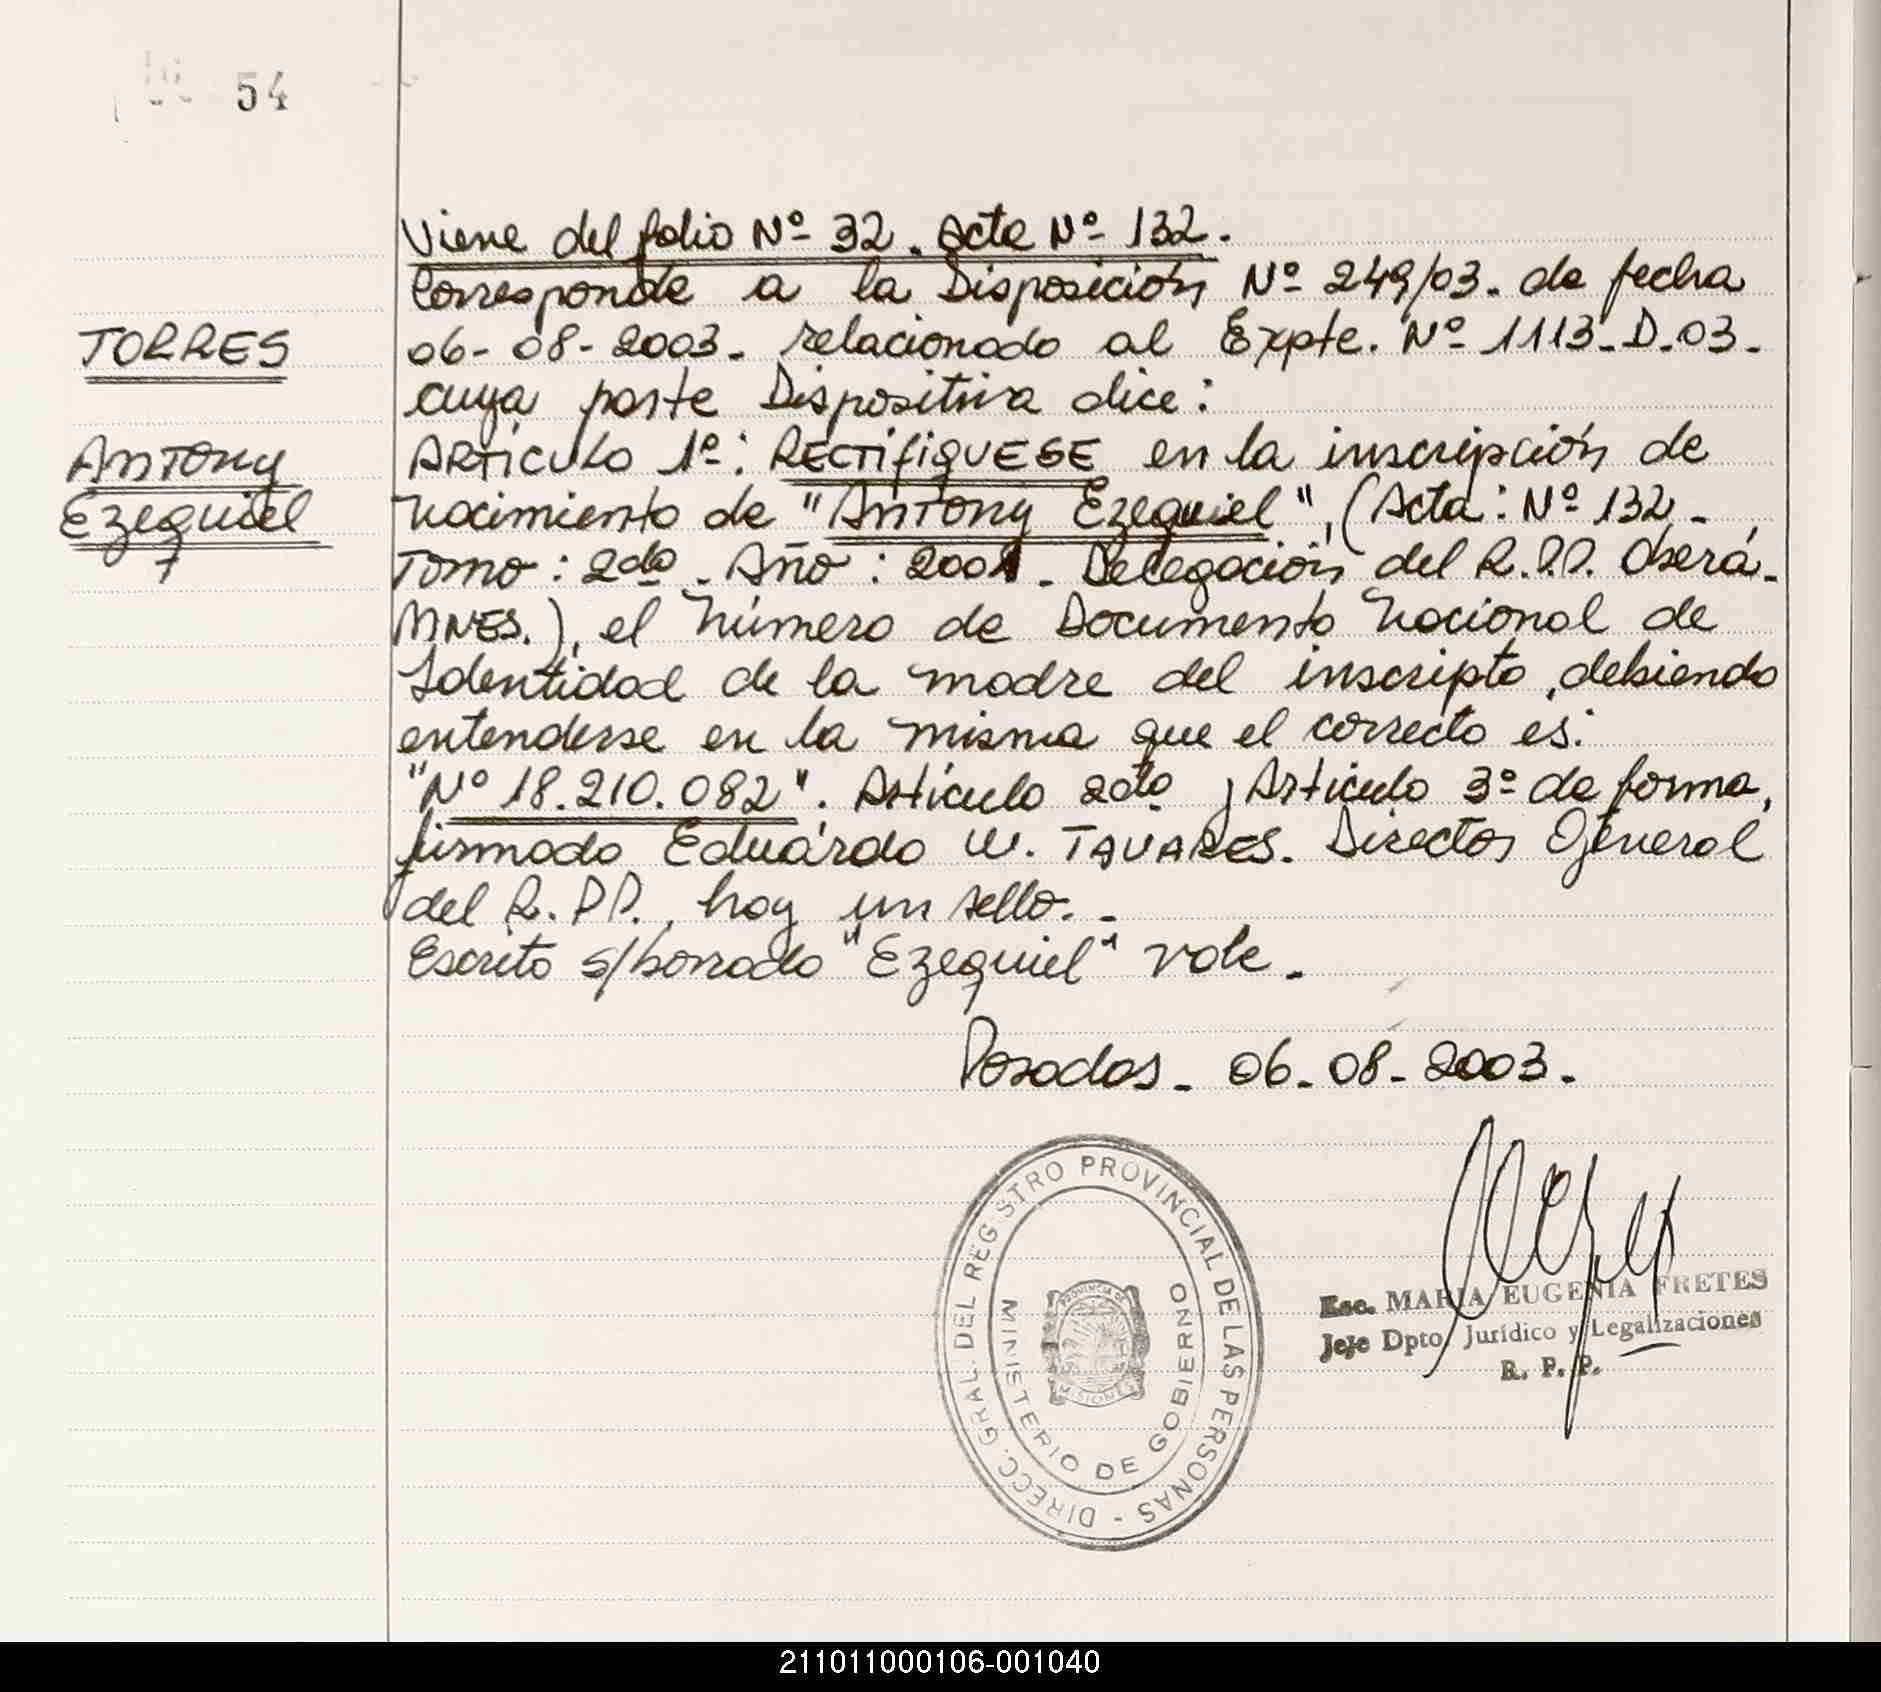 54
Viene del folio Nº 32. Acta Nº 132.
Corresponde a la Disposición Nº 249/03. de fecha
TORRES
06-08-2003. relacionado al Expte. Nº 1113-D-03-
cuya parte Dispositiva dice:
Antony
Ezequiel
ARTÍCULO 1º: RECTIFIQUESE en la inscripción de
Nacimiento de "Antony Ezequiel", (Acta: Nº 132-
Tomo: 2do. Año: 2001. Delegación del R.P.P. Oberá-
MNES.), el Número de Documento Nacional de
Identidad de la madre del inscripto, debiendo
entenderse en la misma que el correcto es:
"Nº 18.210.082". Artículo 2do y Artículo 3º de forma,
firmado Eduardo W. TAVARES. Director General
del R.P.P., hay un sello.-
Escrito s/borrado "Ezequiel" vale.-
Posadas-06-08-2003.
DIRECC. GRAL. DEL REGISTRO PROVINCIAL DE LAS PERSONAS -
MINISTERIO DE GOBIERNO
PROVINCIA DE
MISIONES
Esc. MARIA EUGENIA FRETES
Jefe Dpto, Jurídico y Legalizaciones
R. P. P.
211011000106-001040